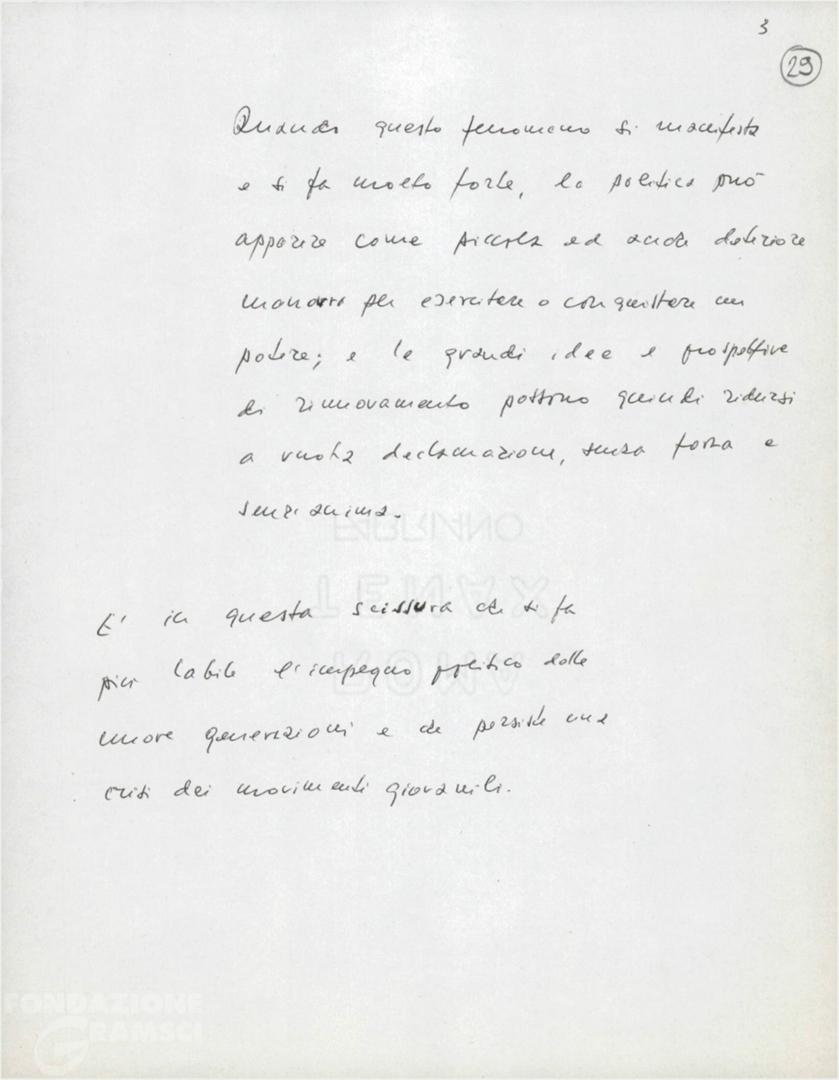 3
29
Quando questo fenomeno si manifesta
e si fa molto forte, la politica può
apparire come piccola ed anche deteriore
manovra per esercitare o conquistare un
potere; e le grandi idee e prospettive
di rinnovamento possono quindi ridursi
a vuota declamazione, senza forza e
senz'anima.
E' in questa scissura che si fa
più labile l'impegno politico delle
nuove generazioni e che persiste una
crisi dei movimenti giovanili.
FABRIANO
TENAX
ROMA
FONDAZIONE
GRAMSCI